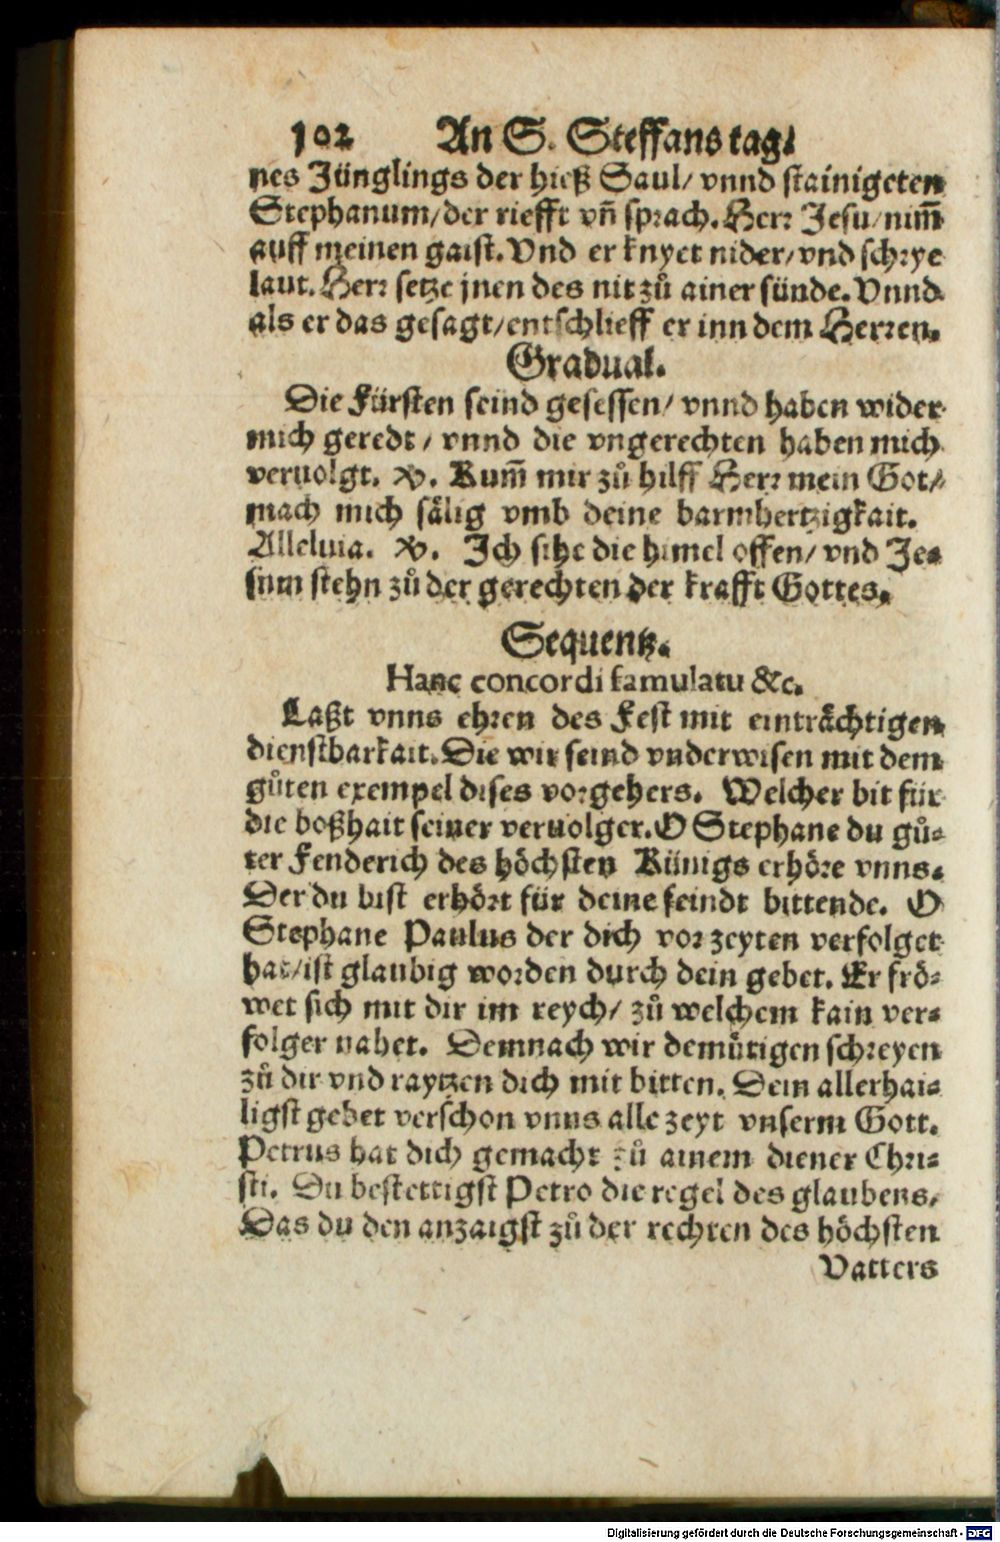 102 An S. Steffans tag.
nes Jünglings der hieß Saul/ vnnd stainigeten
Stephanum/ der riefft vñ sprach. Herr Jesu/ nim̄
auff meinen gaist. Vnd er knyet nider/ vnd schrye
laut. Herr setze jnen des nit zů ainer sünde. Vnnd
als er das gesagt/ entschlieff er inn dem Herren.
Gradual.
Die Fürsten seind gesessen/ vnnd haben wider
mich geredt/ vnnd die vngerechten haben mich
veruolgt. ℣. Kum̄ mir zů hilff Herr mein Got/
mach mich sälig vmb deine barmhertzigkait.
Alleluia. ℣. Ich sihe die himel offen/ vnd Je⸗
sum stehn zů der gerechten der krafft Gottes.
Sequentz.
Hanc concordi famulatu &c.
Laßt vnns ehren des Fest mit einträchtigen
dienstbarkait. Die wir seind vnderwisen mit dem
gůten exempel dises vorgehers. Welcher bit für
die boßhait seiner veruolger. O Stephane du gů⸗
ter Fenderich des höchsten Künigs erhöre vnns.
Der du bist erhört für deine feindt bittende. O
Stephane Paulus der dich vor zeyten verfolget
hat/ ist glaubig worden durch dein gebet. Er frö⸗
wet sich mit dir im reych/ zů welchem kain ver⸗
folger nahet. Demnach wir demůtigen schreyen
zů dir vnd raytzen dich mit bitten. Dein allerhai⸗
ligst gebet verschon vnns alle zeyt vnserm Gott.
Petrus hat dich gemacht zů ainem diener Chri⸗
sti. Du bestettigst Petro die regel des glaubens/
Das du den anzaigst zů der rechten des höchsten
Vatters
Digitalisierung gefördert durch die Deutsche Forschungsgemeinschaft - DFG